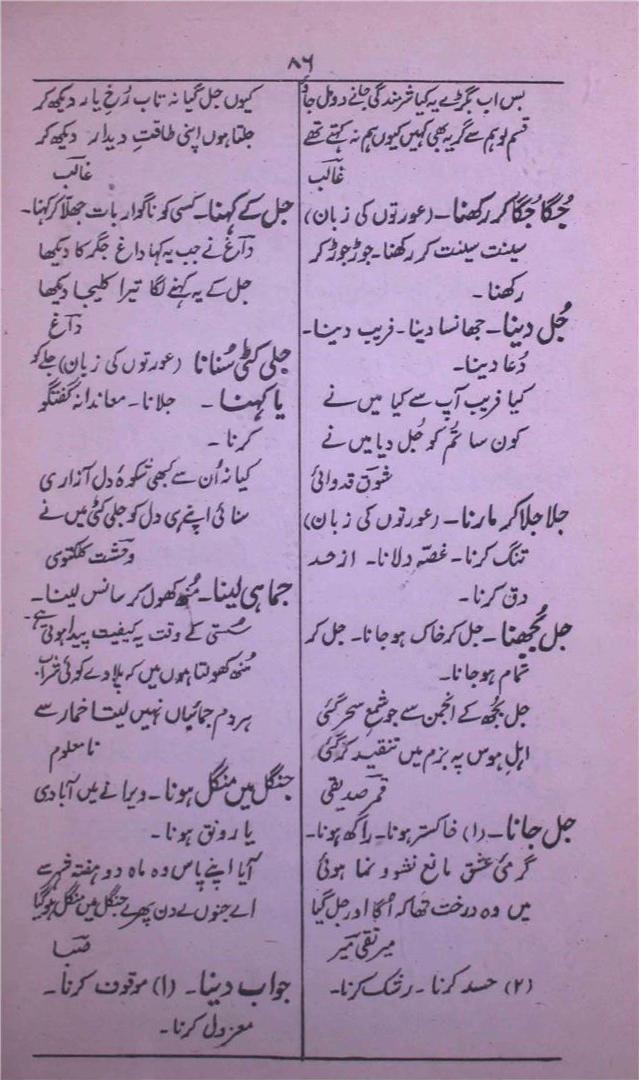 ۸۶
بس اب بگڑے پہ کیا شرمندگی جانے دو مل جاؤ
قسم لو ہم سے گر یہ بھی کہیں کیوں ہم نہ کہتے تھے
غالب
جُگا جُگا کر رکھنا۔ (عورتوں کی زبان)
سینت سینت کر رکھنا۔ جوڑ جوڑ کر
رکھنا۔
جُل دینا۔ جھانسا دینا۔ فریب دینا۔
دُعا دینا۔
کیا فریب آپ سے کیا میں نے
کون سا تُم کو جُل دیا میں نے
شوق قدوائی
جلا جلا کر مارنا۔ (عورتوں کی زبان)
تنگ کرنا۔ غصّہ دلانا۔ از حد
دق کرنا۔
جل بُجھنا۔ جل کر خاک ہو جانا۔ جل کر
تمام ہو جانا۔
جل بُجھ کے انجمن سے جو شمعِ سحر گئی
اہلِ ہوس پہ بزم میں تنقید کر گئی
قمر صدیقی
جل جانا۔ (۱) خاکستر ہونا۔ راکھ ہونا۔
گرمئ عشق مانعِ نشو و نما ہوئی
میں وہ درخت تھا کہ اُگا اور جل گیا
میر تقی میر
(۲) حسد کرنا۔ رشک کرنا۔
کیوں جل گیا نہ تابِ رُخِ یار دیکھ کر
جلتا ہوں اپنی طاقتِ دیدار دیکھ کر
غالب
جل کے کہنا۔ کسی کو ناگوار بات جھلّا کر کہنا۔
داغ نے جب یہ کہا داغ جگر کا دیکھا
جل کے یہ کہنے لگا تیرا کلیجا دیکھا
داغ
جلی کٹی سُنانا (عورتوں کی زبان) جلے کو
یا کہنا۔ جلانا۔ معاندانہ گفتگو
کرنا۔
کیا نہ اُن سے کبھی شکوۂ دل آزاری
سنائی اپنے ہی دل کو جلی کٹی میں نے
وحشت کلکتوی
جماہی لینا۔ مُنھ کھول کر سانس لینا۔
سُستی کے وقت یہ کیفیت پیدا ہوتی ہے۔
مُنھ کھولتا ہوں میں کہ پلا دے کوئی شراب
ہر دم جمائیاں نہیں لیتا خمار سے
نامعلوم
جنگل میں منگل ہونا۔ ویرانے میں آبادی
یا رونق ہونا۔
آیا اپنے پاس وہ ماہِ دو ہفتہ شہر سے
اے جنوں لے دن پھرے جنگل میں منگل ہو گیا
صبا
جواب دینا۔ (۱) موقوف کرنا۔
معزول کرنا۔